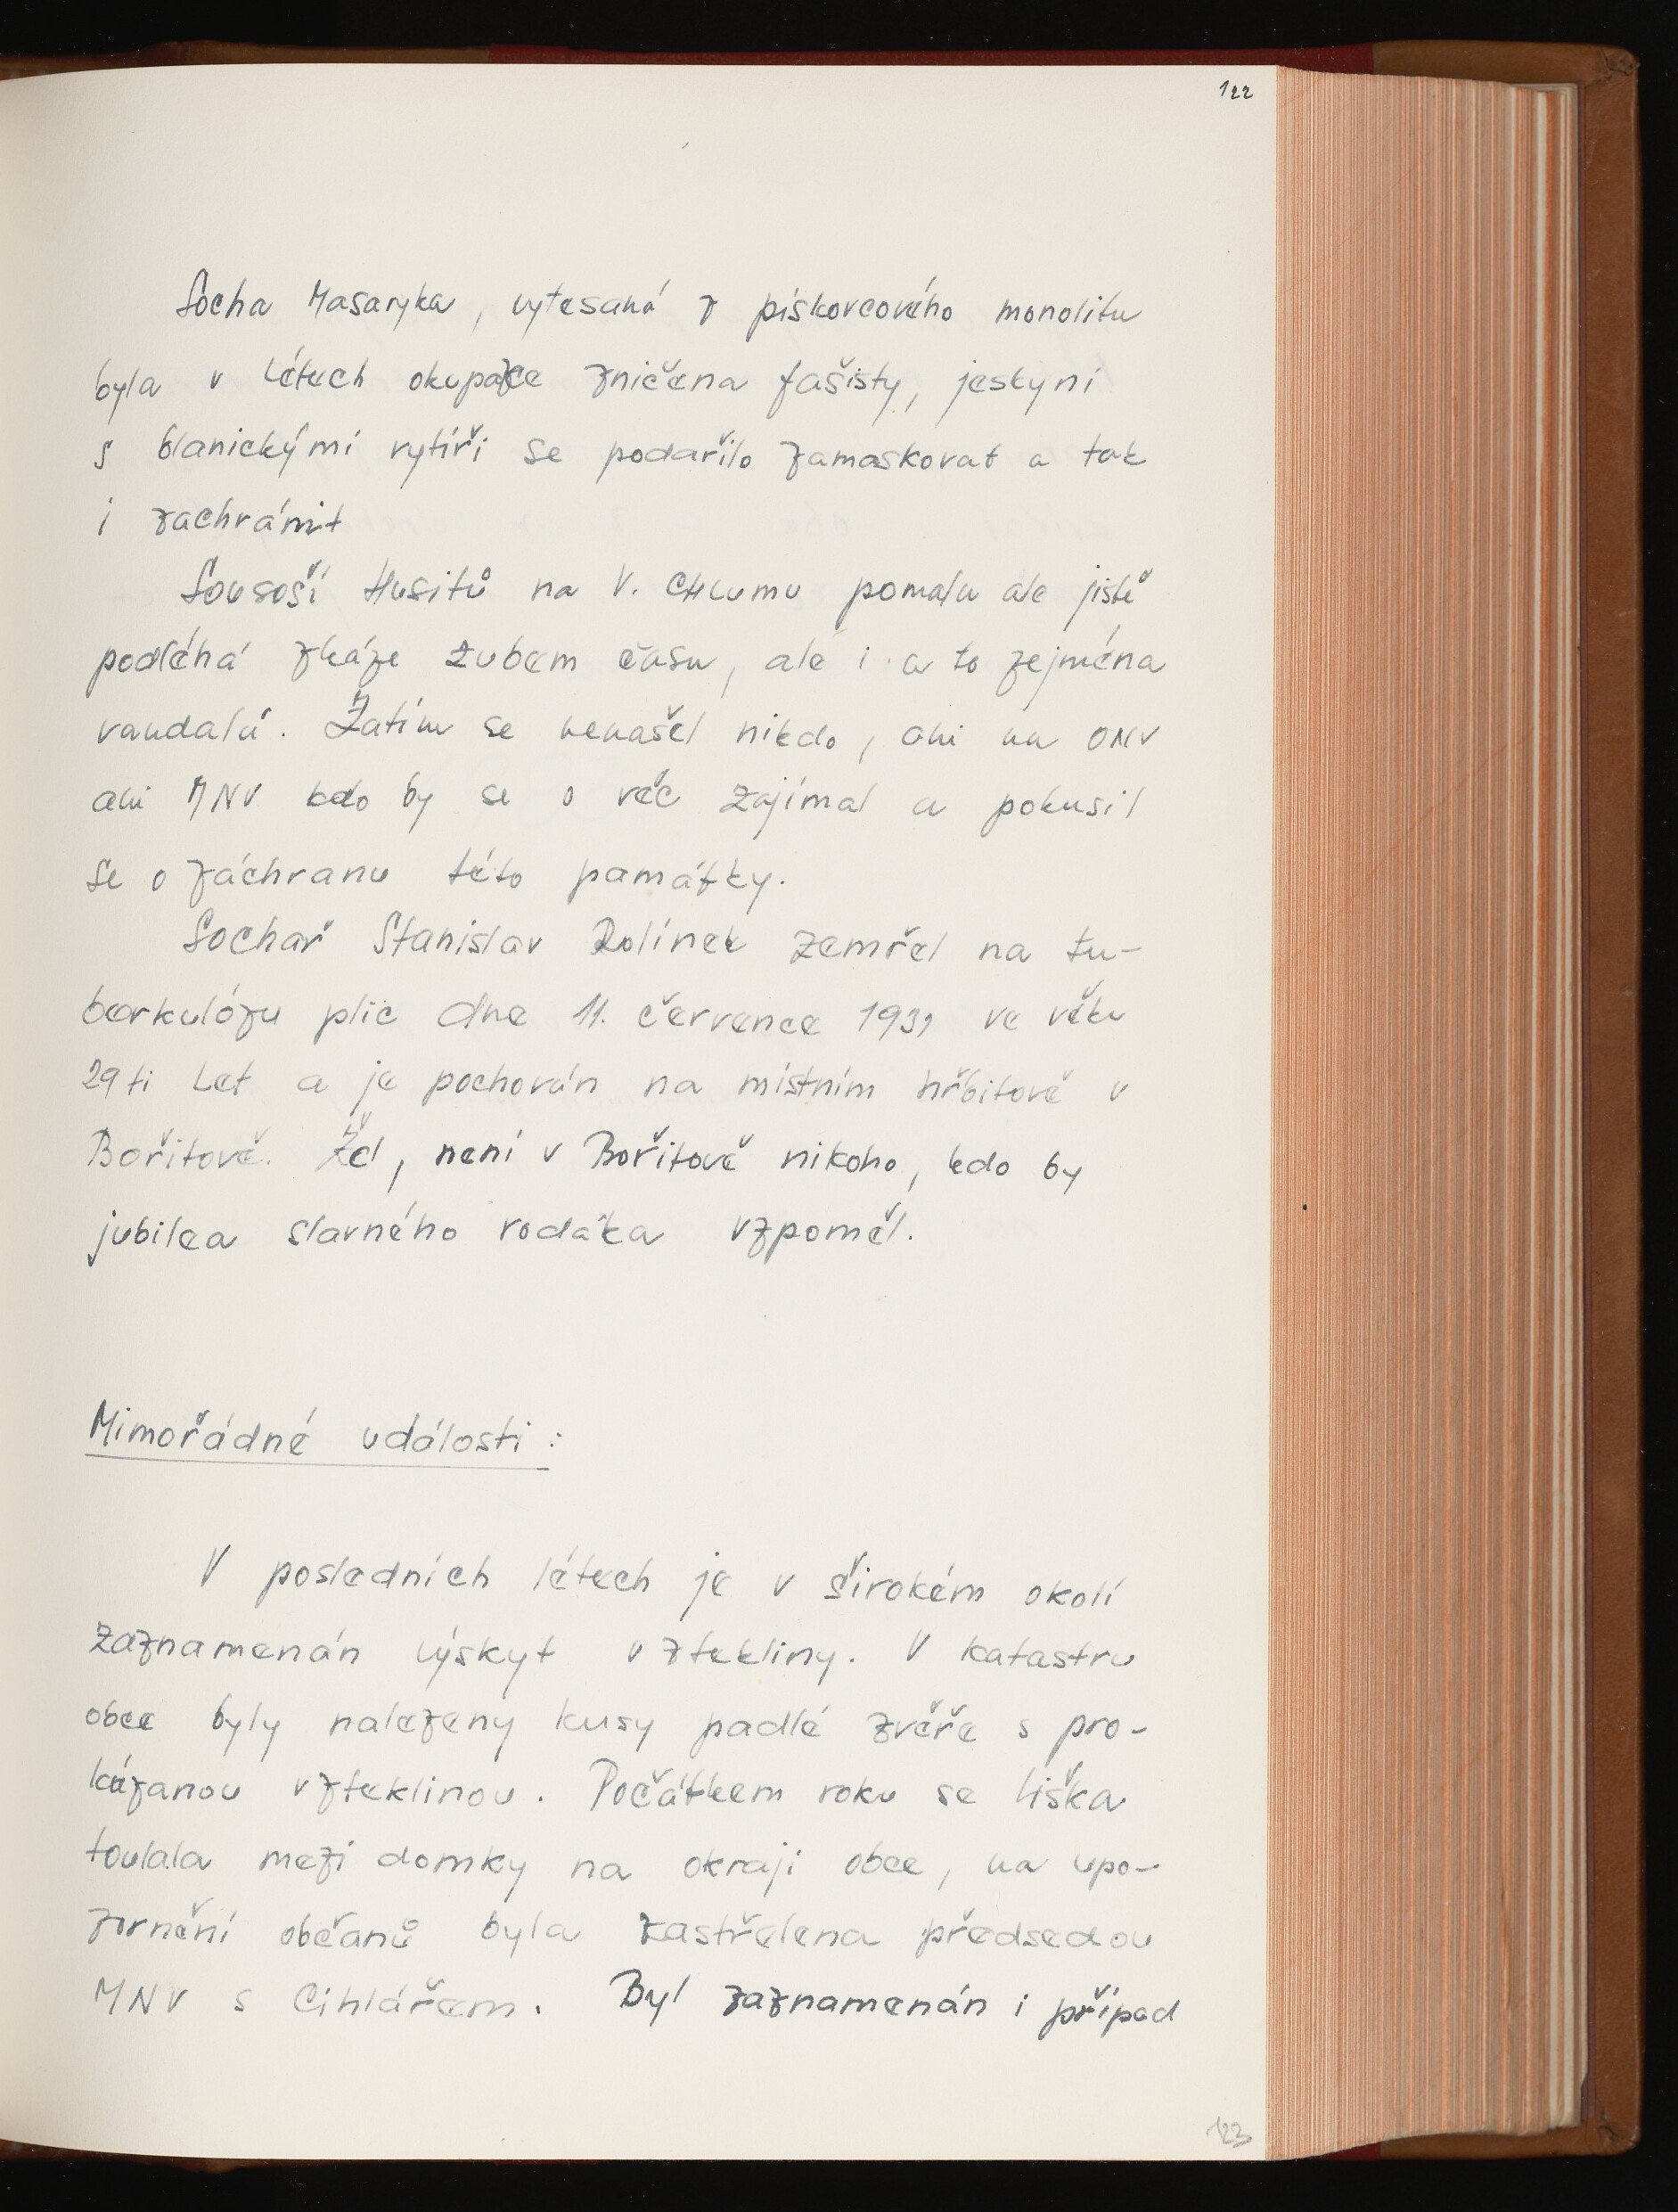 122
Socha Masaryka, vytesaná z pískovcového monolitu
byla v létech okupace zničena fašisty, jeskyni
s blanickými rytíři se podařilo zamaskovat a tak
i zachránit
Sousoší Husitů na V. Chlumu pomalu ale jistě
podléhá zkáze zubem času, ale i a to zejména
vandalů. Zatím se nenašel nikdo, ani na ONV
ani MNV kdo by se o věc zajímal a pokusil
se o záchranu této památky.
Sochař Stanislav Rolínek zemřel na tu-
berkulózu plic dne 11. července 1931 ve věku
29 ti let a je pochován na místním hřbitově v
Bořitově. Žel, není v Bořitově nikoho, kdo by
jubilea slavného rodáka vzpoměl.
Mimořádné události:
V posledních létech je v širokém okolí
zaznamenán výskyt vztekliny. V katastru
obce byly nalezeny kusy padlé zvěře s pro-
kázanou vzteklinou. Počátkem roku se liška
toulala mezi domky na okraji obce, na upo-
zornění občanů byla zastřelena předsedou
MNV s Cihlářem. Byl zaznamenán i případ
123